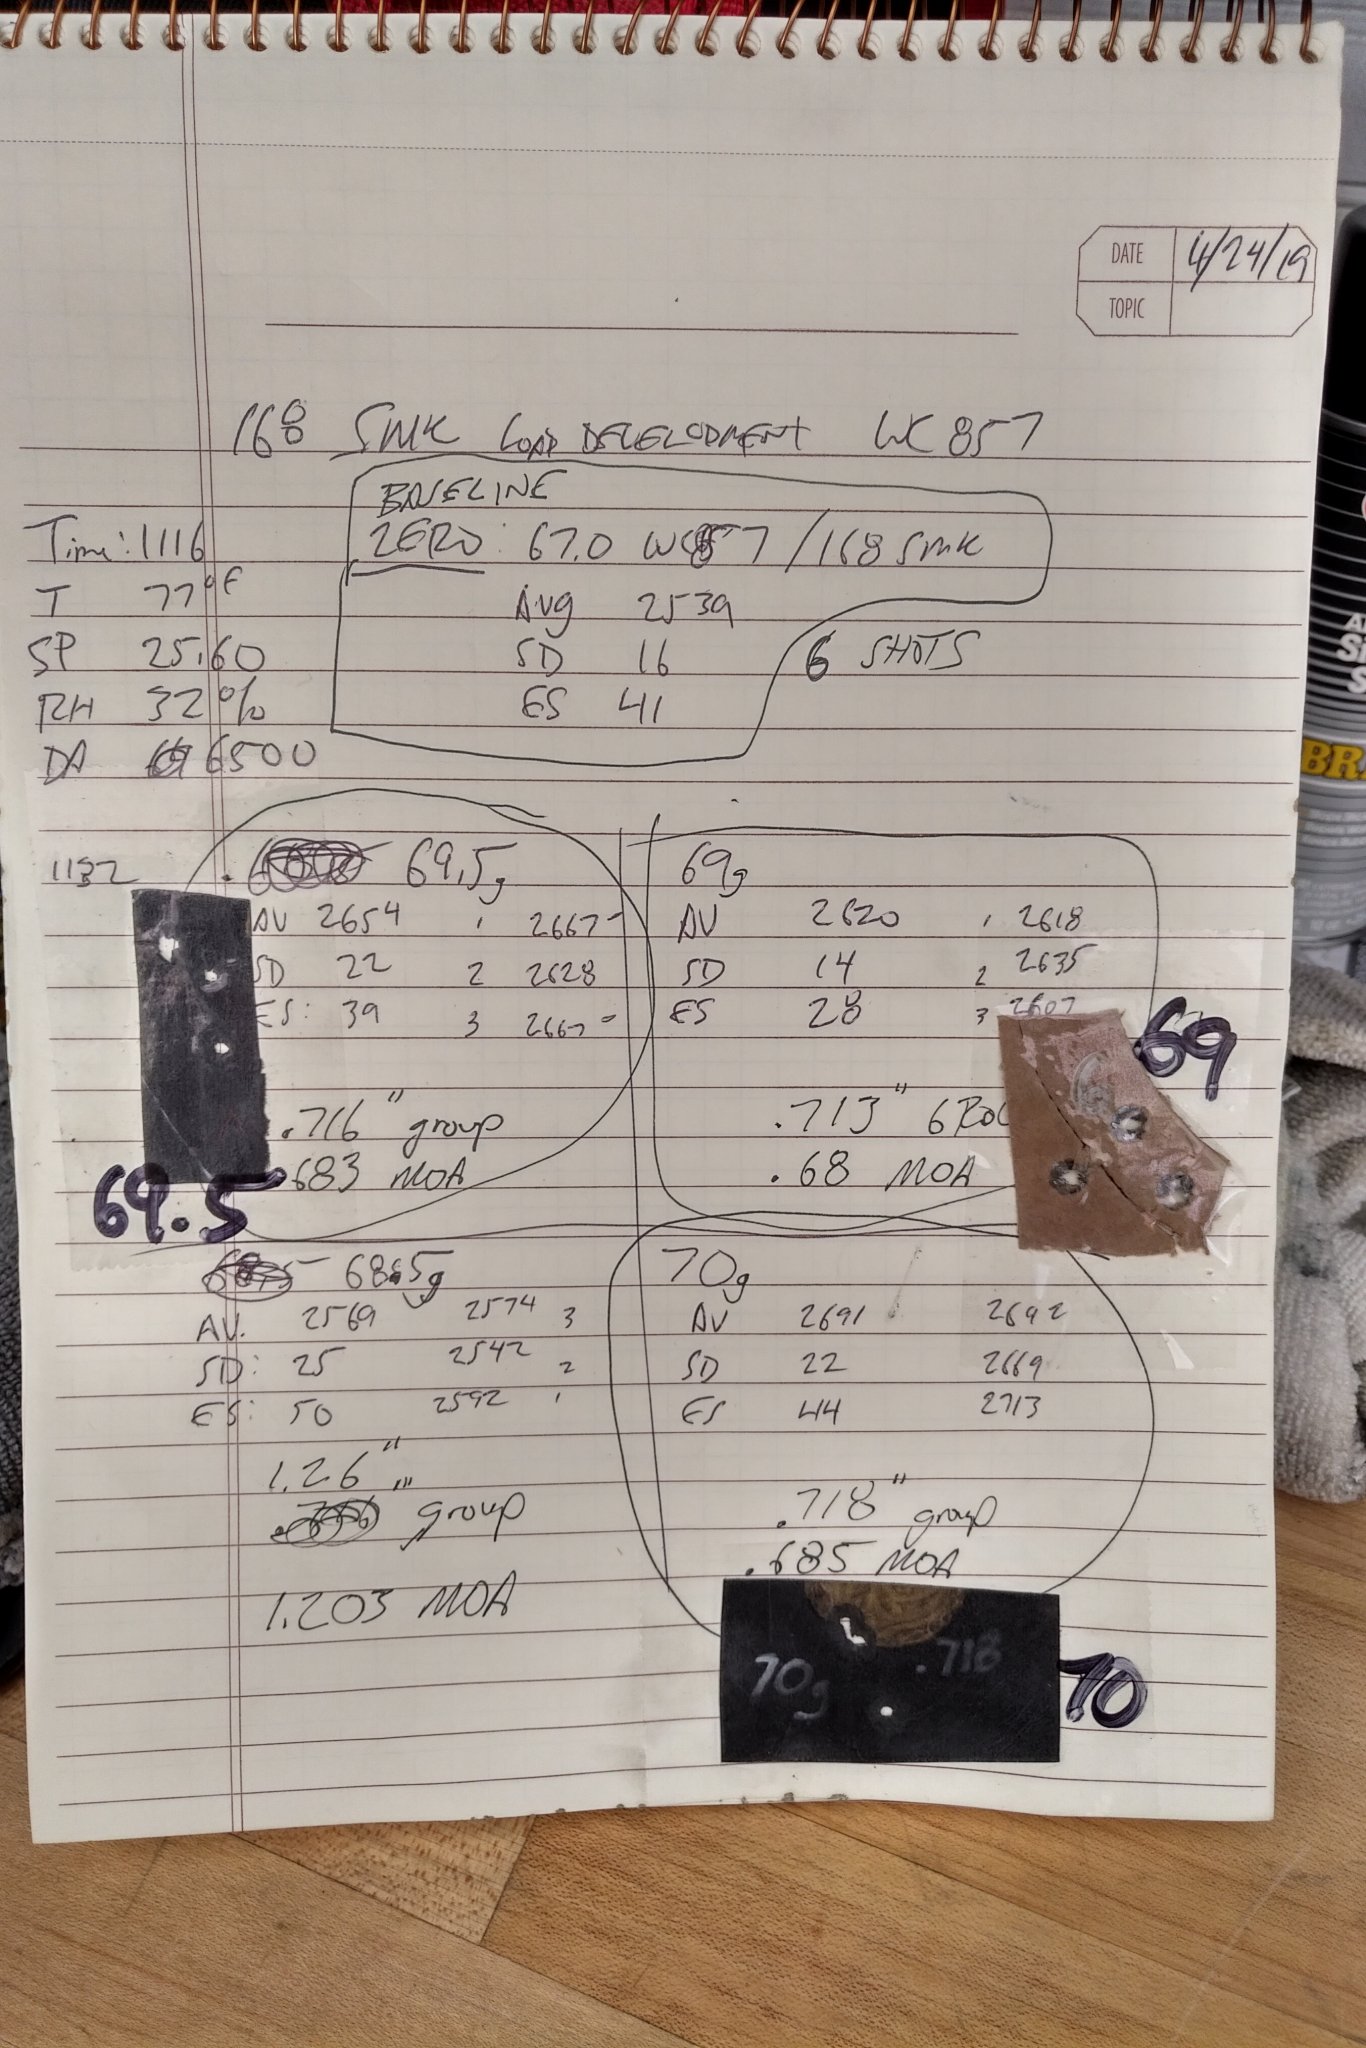 DATE 4/24/19
TOPIC
168 SMK LOAD DEVELOPMENT WC 857
BASELINE
ZERO: 67.0 WC857 / 168 SMK
Avg 2539
SD 16
ES 41
6 SHOTS
Time: 1116
T 77°F
SP 25.60
RH 32%
DA 6500
1132
69.5g
AV 2654 1 2667
SD 22 2 2628
ES: 39 3 2667
.716" group
.683 MOA
69.5
69g
AV 2620 1 2618
SD 14 2 2635
ES 28 3 2607
.713" GROU
.68 MOA
69
68.5g
AV. 2569 2574 3
SD: 25 2542 2
ES: 50 2592 1
1.26"
group
1.203 MOA
70g
AV 2691 2692
SD 22 2669
ES 44 2713
.718" group
.685 MOA
70g .718
70
BRA